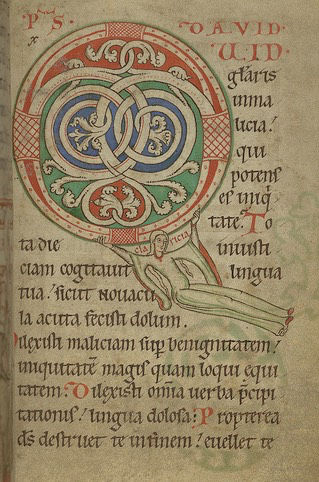 PS. DAVID.
QUID
gl̄aris
in ma
licia?
qui
potens
es iniq̇
tate. To
ta die iniusti
ciam cogitauit lingua
tua! sicut nouacu
la acuta fecisti dolum.
Dilexisti maliciam sup̄ benignitatem!
iniquitatē magis quam loqui equi
tatem. Dilexisti om̄ia uerba p̄cipi
tationis! lingua dolosa. Propterea
dš destruet te in finem! euellet te
claricia